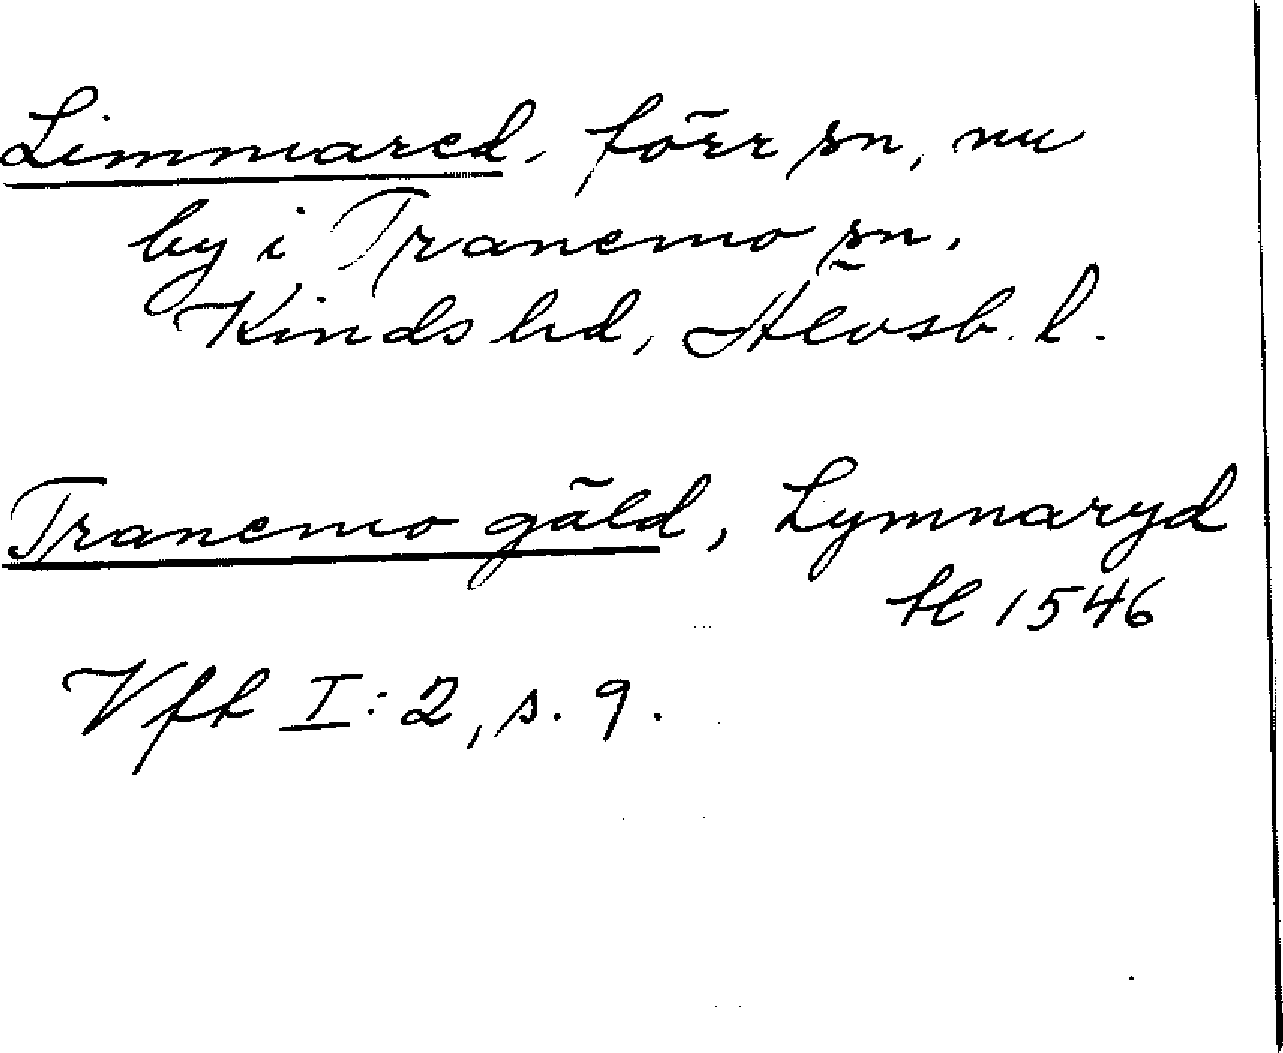 Limmared, förr sn, nu
by i Tranemo sn.
Kinds hd, Älvsb. l.
Tranemo gäld, Lymnaryd
1546
Vfh I:2, s. 9.